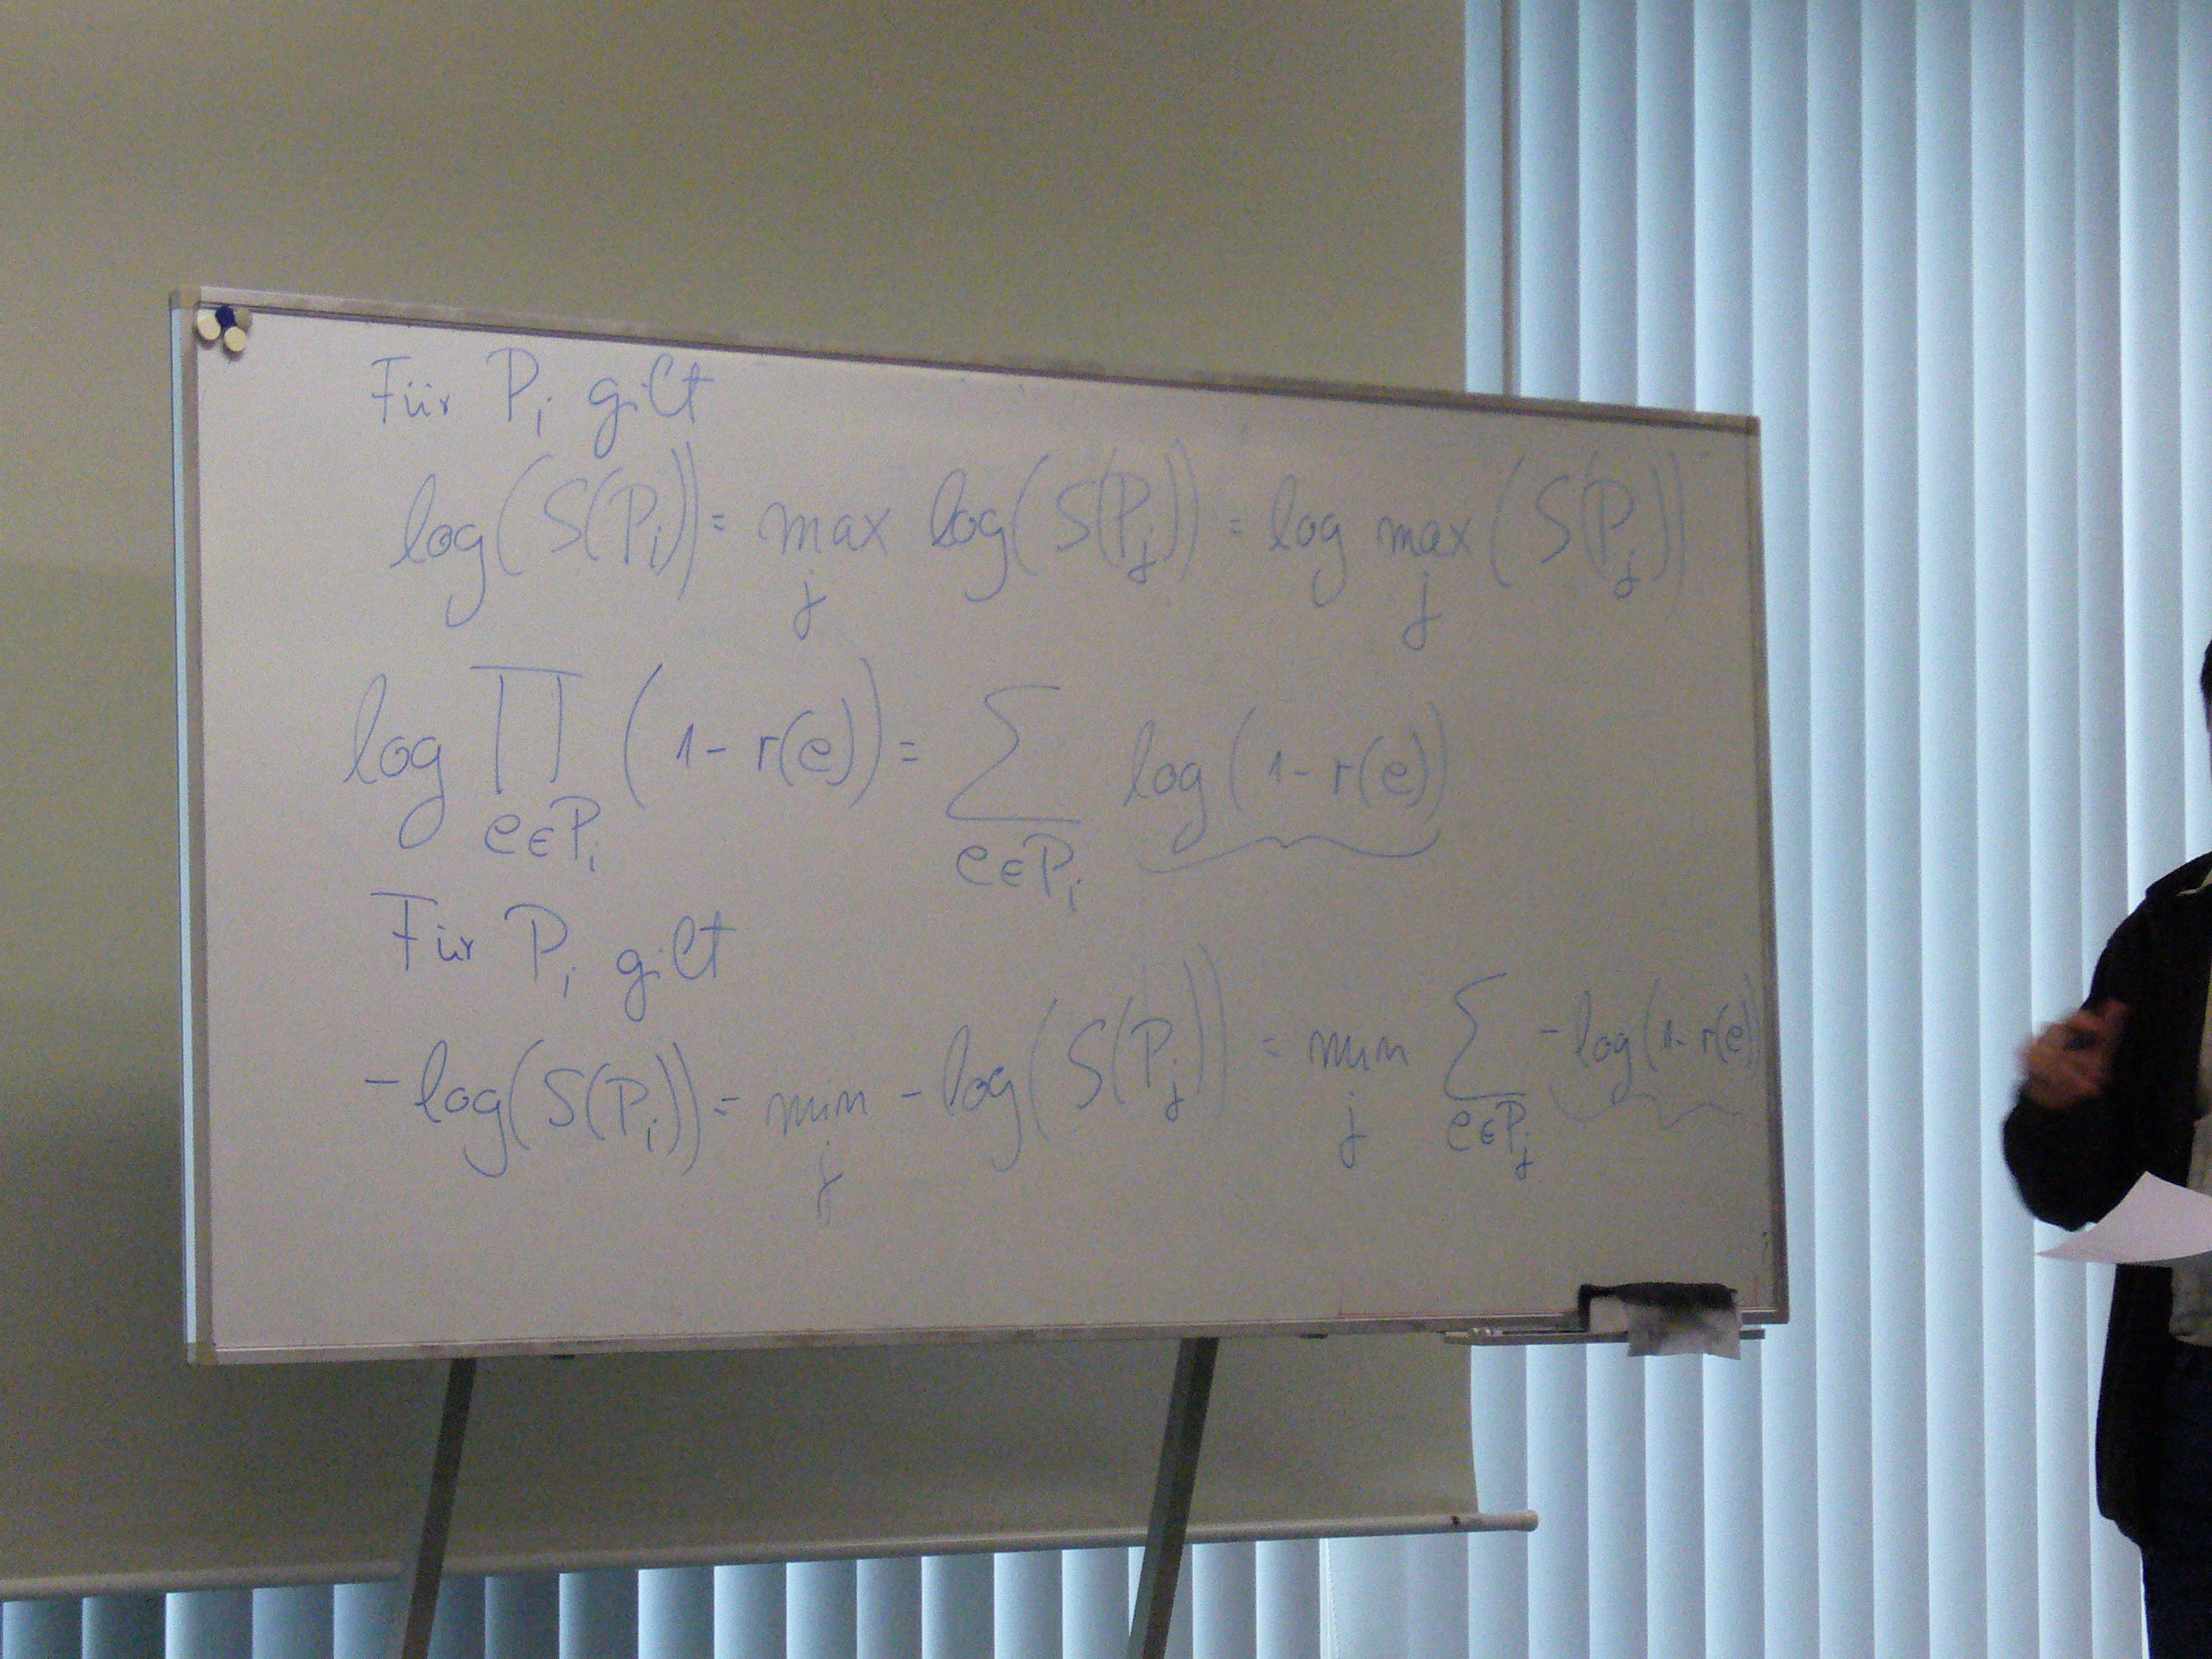 Für Pᵢ gilt
log(S(Pᵢ)) = max_j log(S(P_j)) = log max_j (S(P_j))
log ∏_{e∈Pᵢ} (1 - r(e)) = ∑_{e∈Pᵢ} log(1 - r(e))
Für Pᵢ gilt
-log(S(Pᵢ)) = min_j -log(S(P_j)) = min_j ∑_{e∈P_j} -log(1 - r(e))